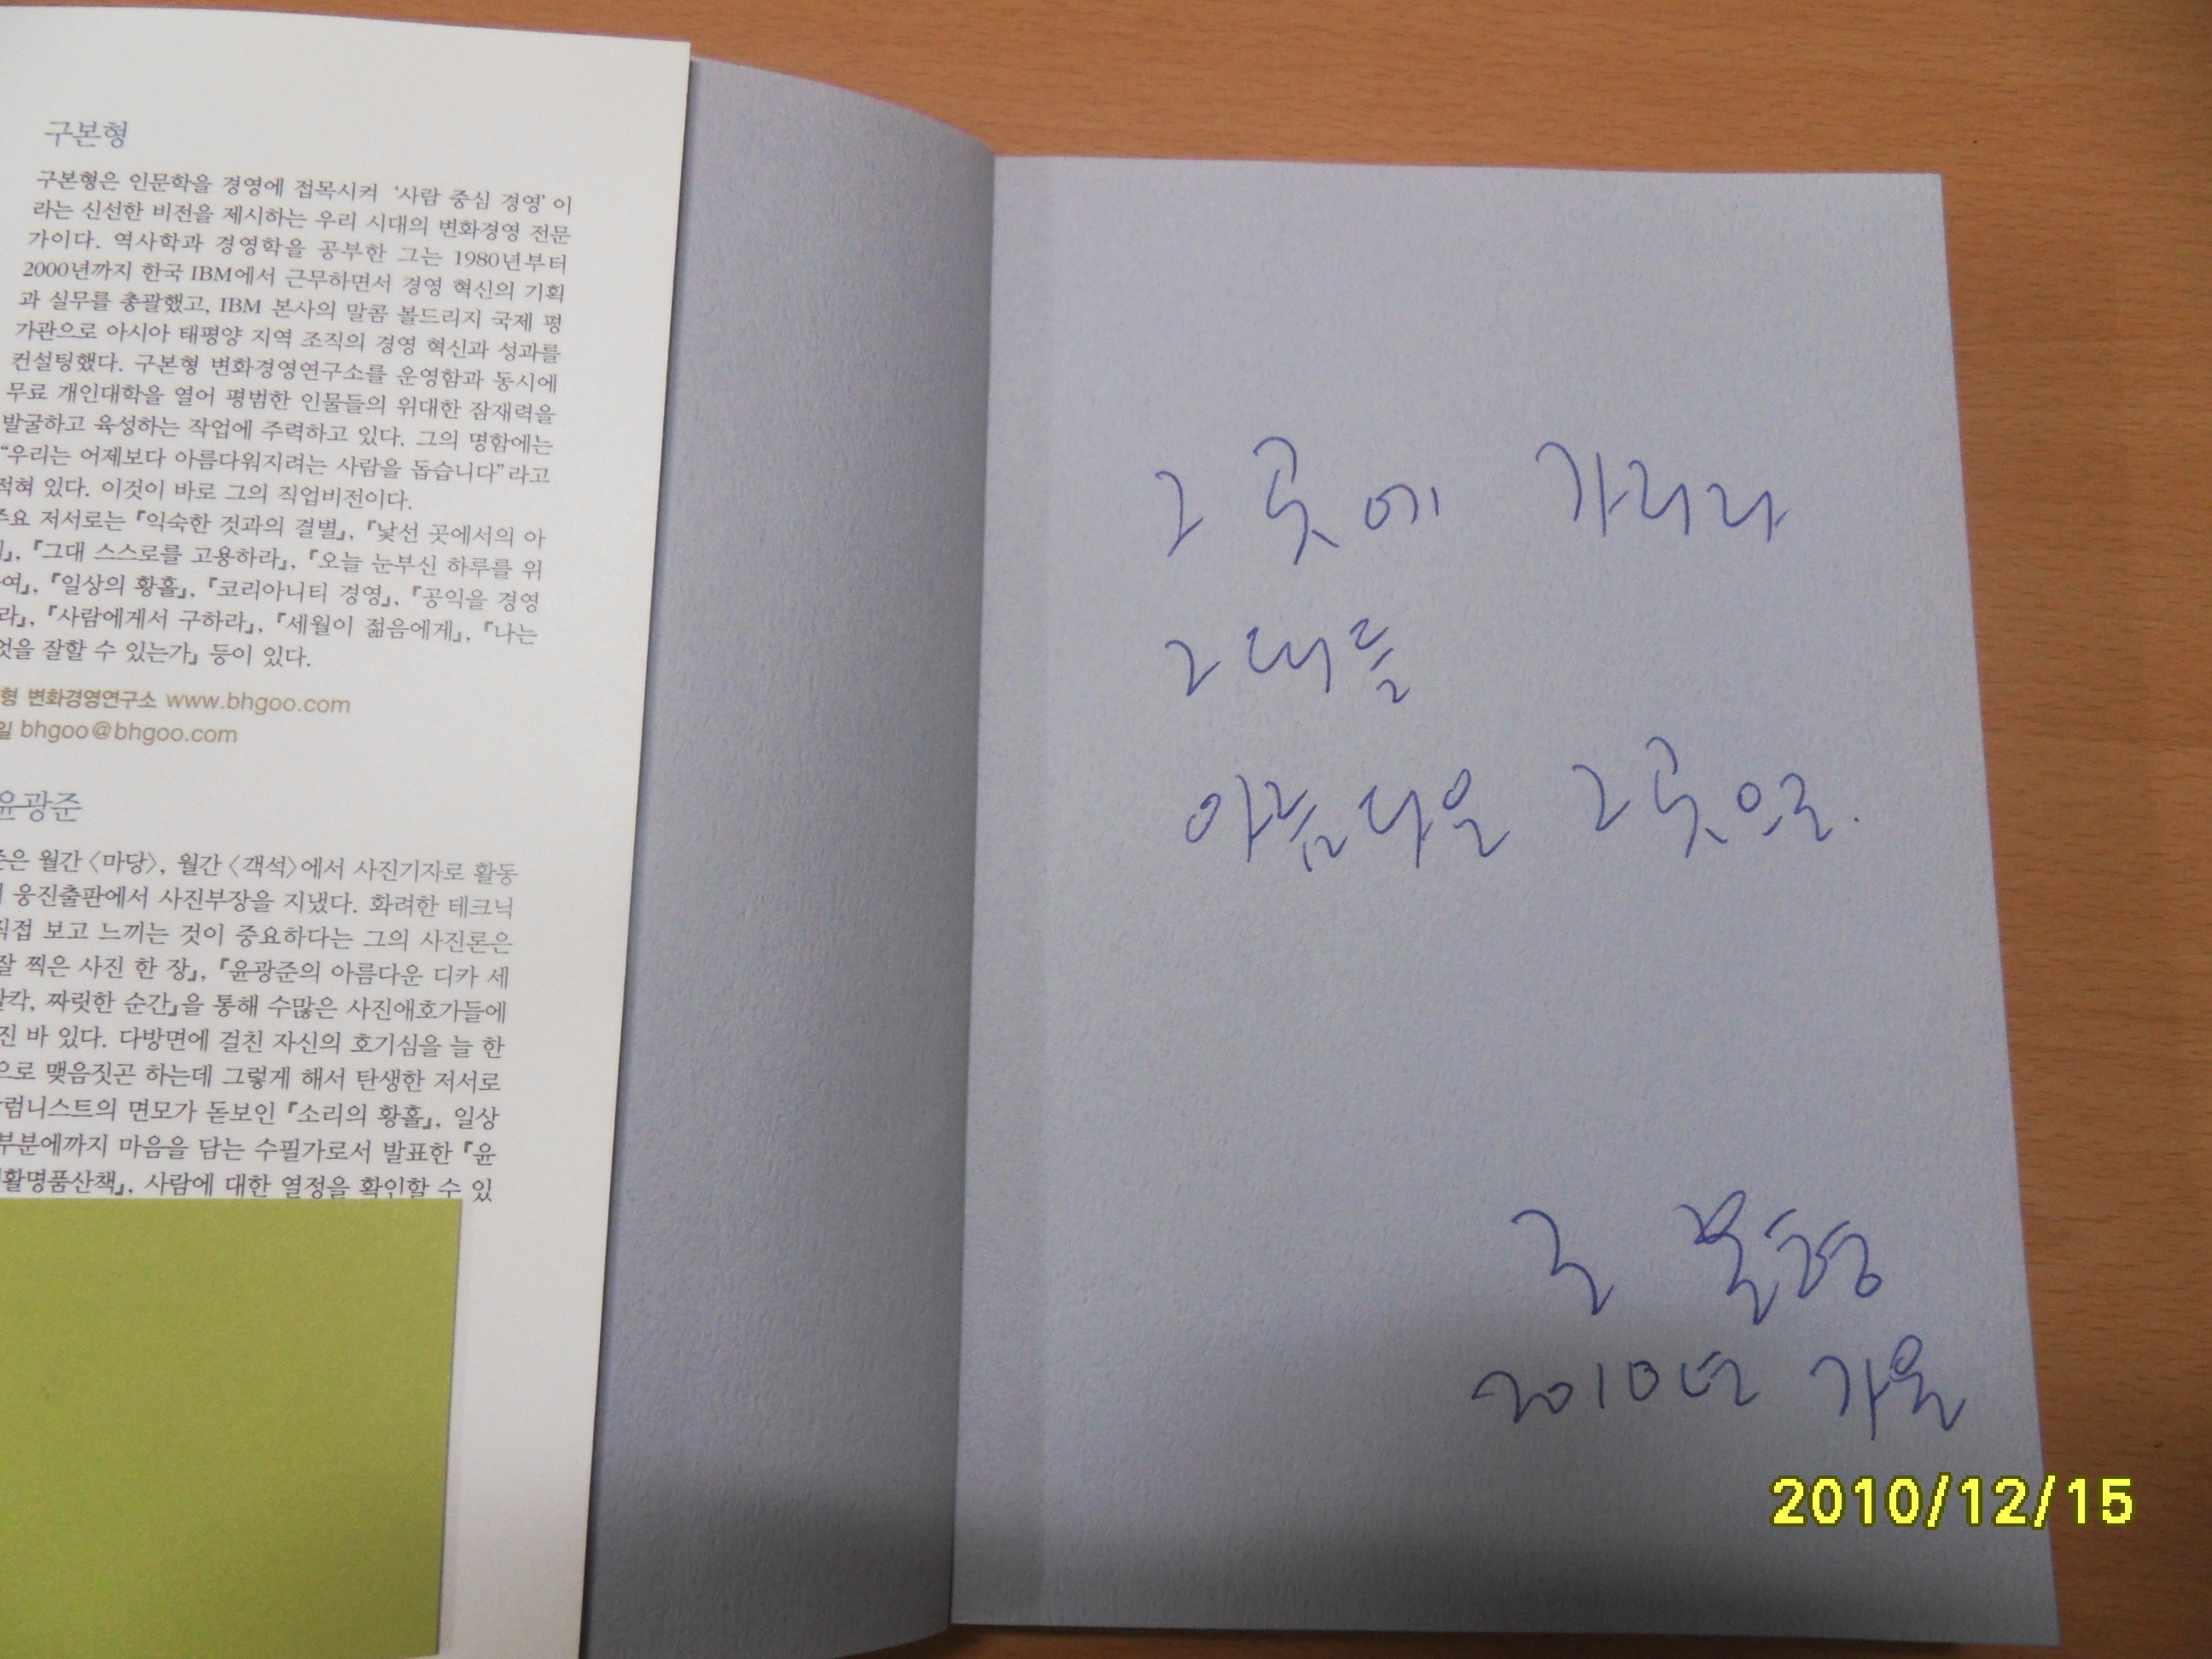 구본형
구본형은 인문학을 경영에 접목시켜 ‘사람 중심 경영’이
라는 신선한 비전을 제시하는 우리 시대의 변화경영 전문
가이다. 역사학과 경영학을 공부한 그는 1980년부터
2000년까지 한국 IBM에서 근무하면서 경영 혁신의 기획
과 실무를 총괄했고, IBM 본사의 말콤 볼드리지 국제 평
가관으로 아시아 태평양 지역 조직의 경영 혁신과 성과를
컨설팅했다. 구본형 변화경영연구소를 운영함과 동시에
무료 개인대학을 열어 평범한 인물들의 위대한 잠재력을
발굴하고 육성하는 작업에 주력하고 있다. 그의 명함에는
“우리는 어제보다 아름다워지려는 사람을 돕습니다”라고
적혀 있다. 이것이 바로 그의 직업비전이다.
주요 저서로는 『익숙한 것과의 결별』, 『낯선 곳에서의 아
』, 『그대 스스로를 고용하라』, 『오늘 눈부신 하루를 위
여』, 『일상의 황홀』, 『코리아니티 경영』, 『공익을 경영
라』, 『사람에게서 구하라』, 『세월이 젊음에게』, 『나는
엇을 잘할 수 있는가』 등이 있다.
형 변화경영연구소 www.bhgoo.com
일 bhgoo@bhgoo.com
윤광준
준은 월간 〈마당〉, 월간 〈객석〉에서 사진기자로 활동
웅진출판에서 사진부장을 지냈다. 화려한 테크닉
직접 보고 느끼는 것이 중요하다는 그의 사진론은
잘 찍은 사진 한 장』, 『윤광준의 아름다운 디카 세
칵, 짜릿한 순간』을 통해 수많은 사진애호가들에
진 바 있다. 다방면에 걸친 자신의 호기심을 늘 한
으로 맺음짓곤 하는데 그렇게 해서 탄생한 저서로
럼니스트의 면모가 돋보인 『소리의 황홀』, 일상
부분에까지 마음을 담는 수필가로서 발표한 『윤
활명품산책』, 사람에 대한 열정을 확인할 수 있
그 곳에 가리라
그대들
아름다운 그곳으로.
구 본형
2010년 가을
2010/12/15